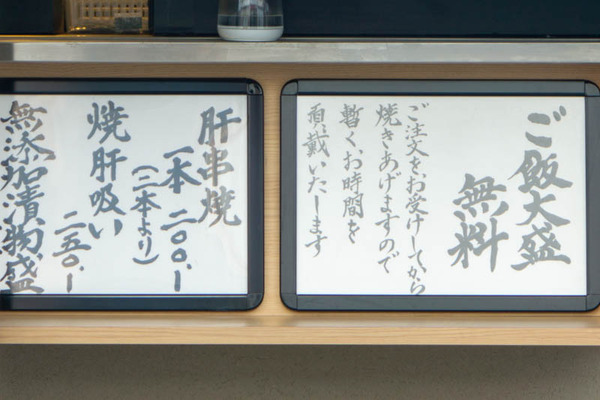 ご飯大盛
無料
ご注文をお受けしてから
焼きあげますので
暫くお時間を
頂戴いたします
肝串焼
一本 二〇〇、ー
(二本より)
焼肝吸い
二五〇、ー
無添加漬物盛